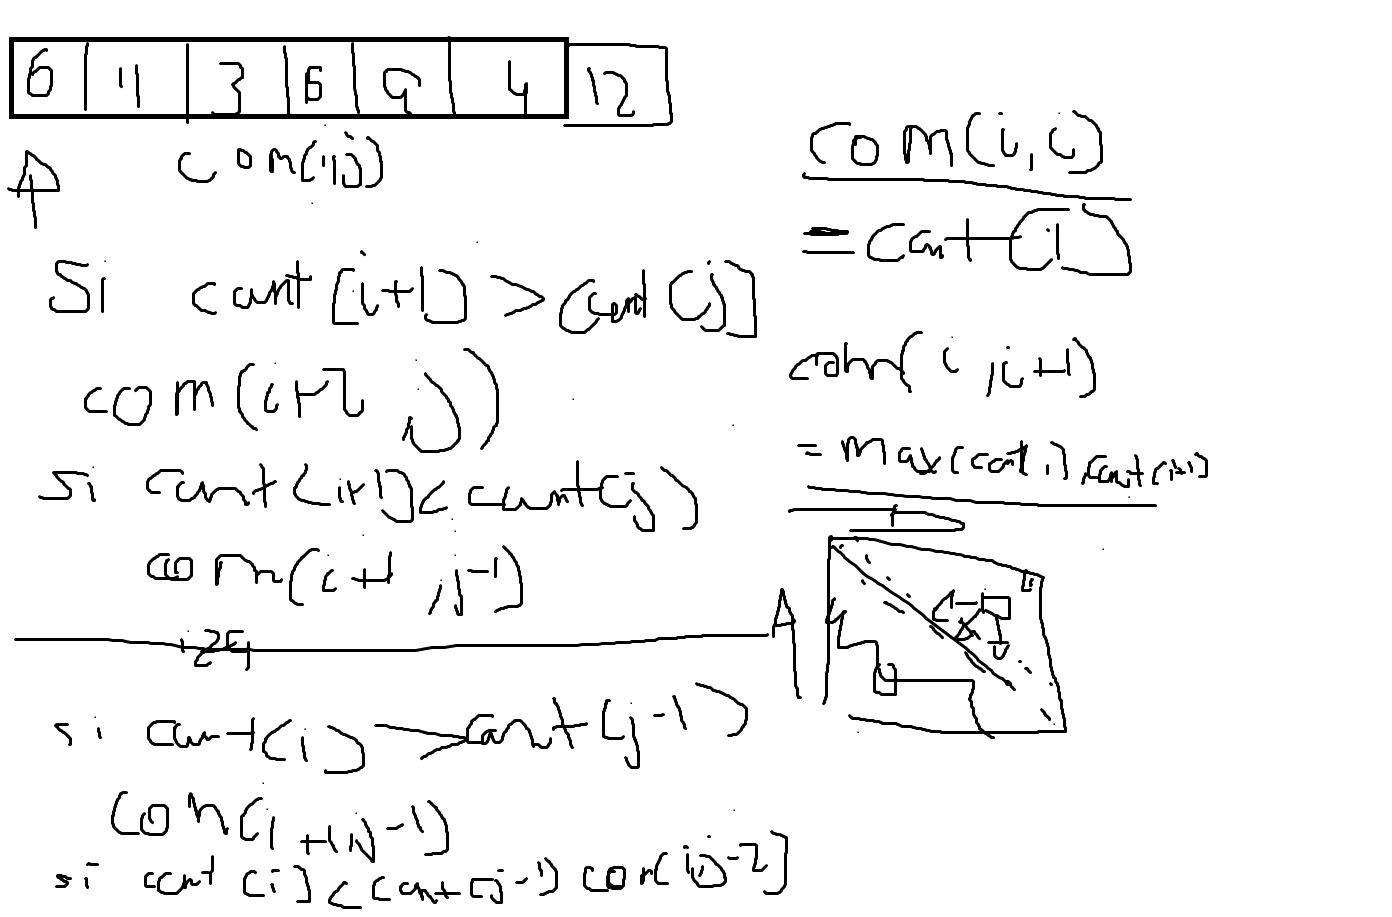 6 4 3 6 9 4 12
com(i,j)
Si cant[i+1] > cant[j]
com(i+2, j)
si cant(i+1) < cant(j)
com(i+1, j-1)
si cant(i) > cant(j-1)
com(i+1, j-1)
si cant [i] < cant[j-1) com(i,j-2]
com(i,i)
= cant(i)
com(i,i+1)
= max(cant i) cant(i+1)